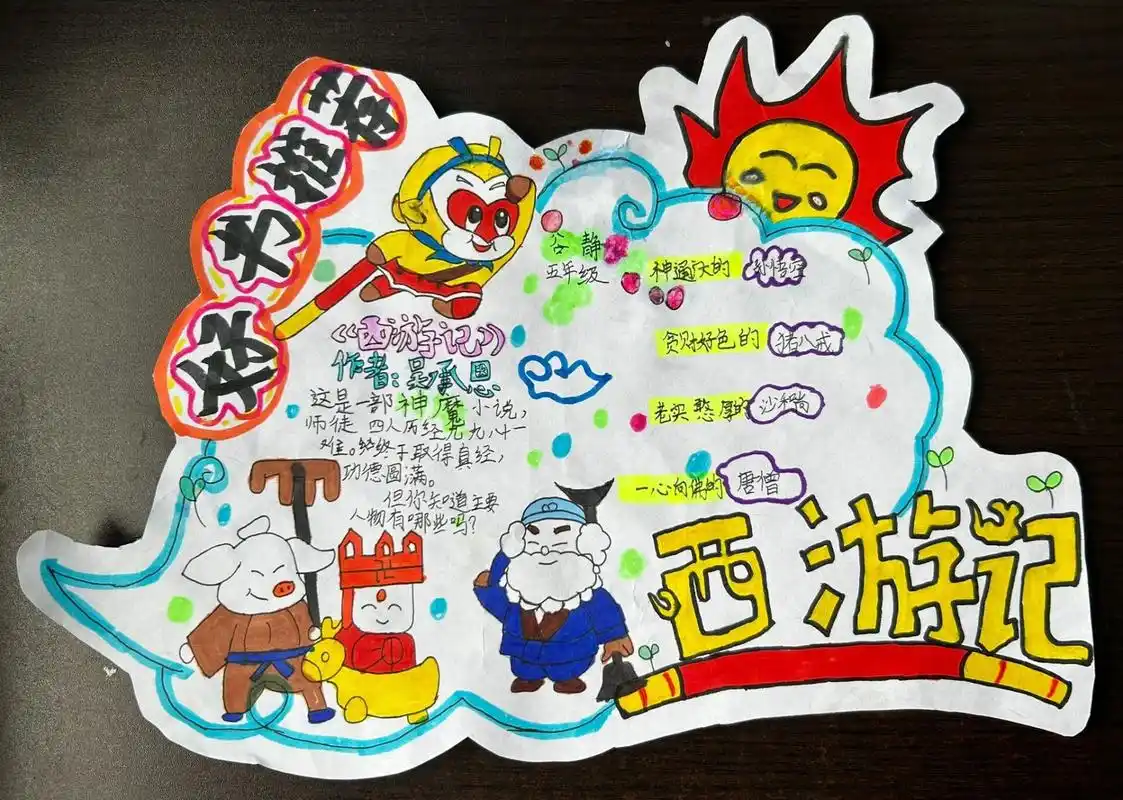 好书推荐
谷静
五年级
《西游记》
作者:吴承恩
这是一部神魔小说,
师徒四人历经九九八十一
难。终终于取得真经,
功德圆满。
但你知道主要
人物有哪些吗?
神通广大的 孙悟空
贪财好色的 猪八戒
老实憨厚的 沙和尚
一心向佛的 唐僧
西游记